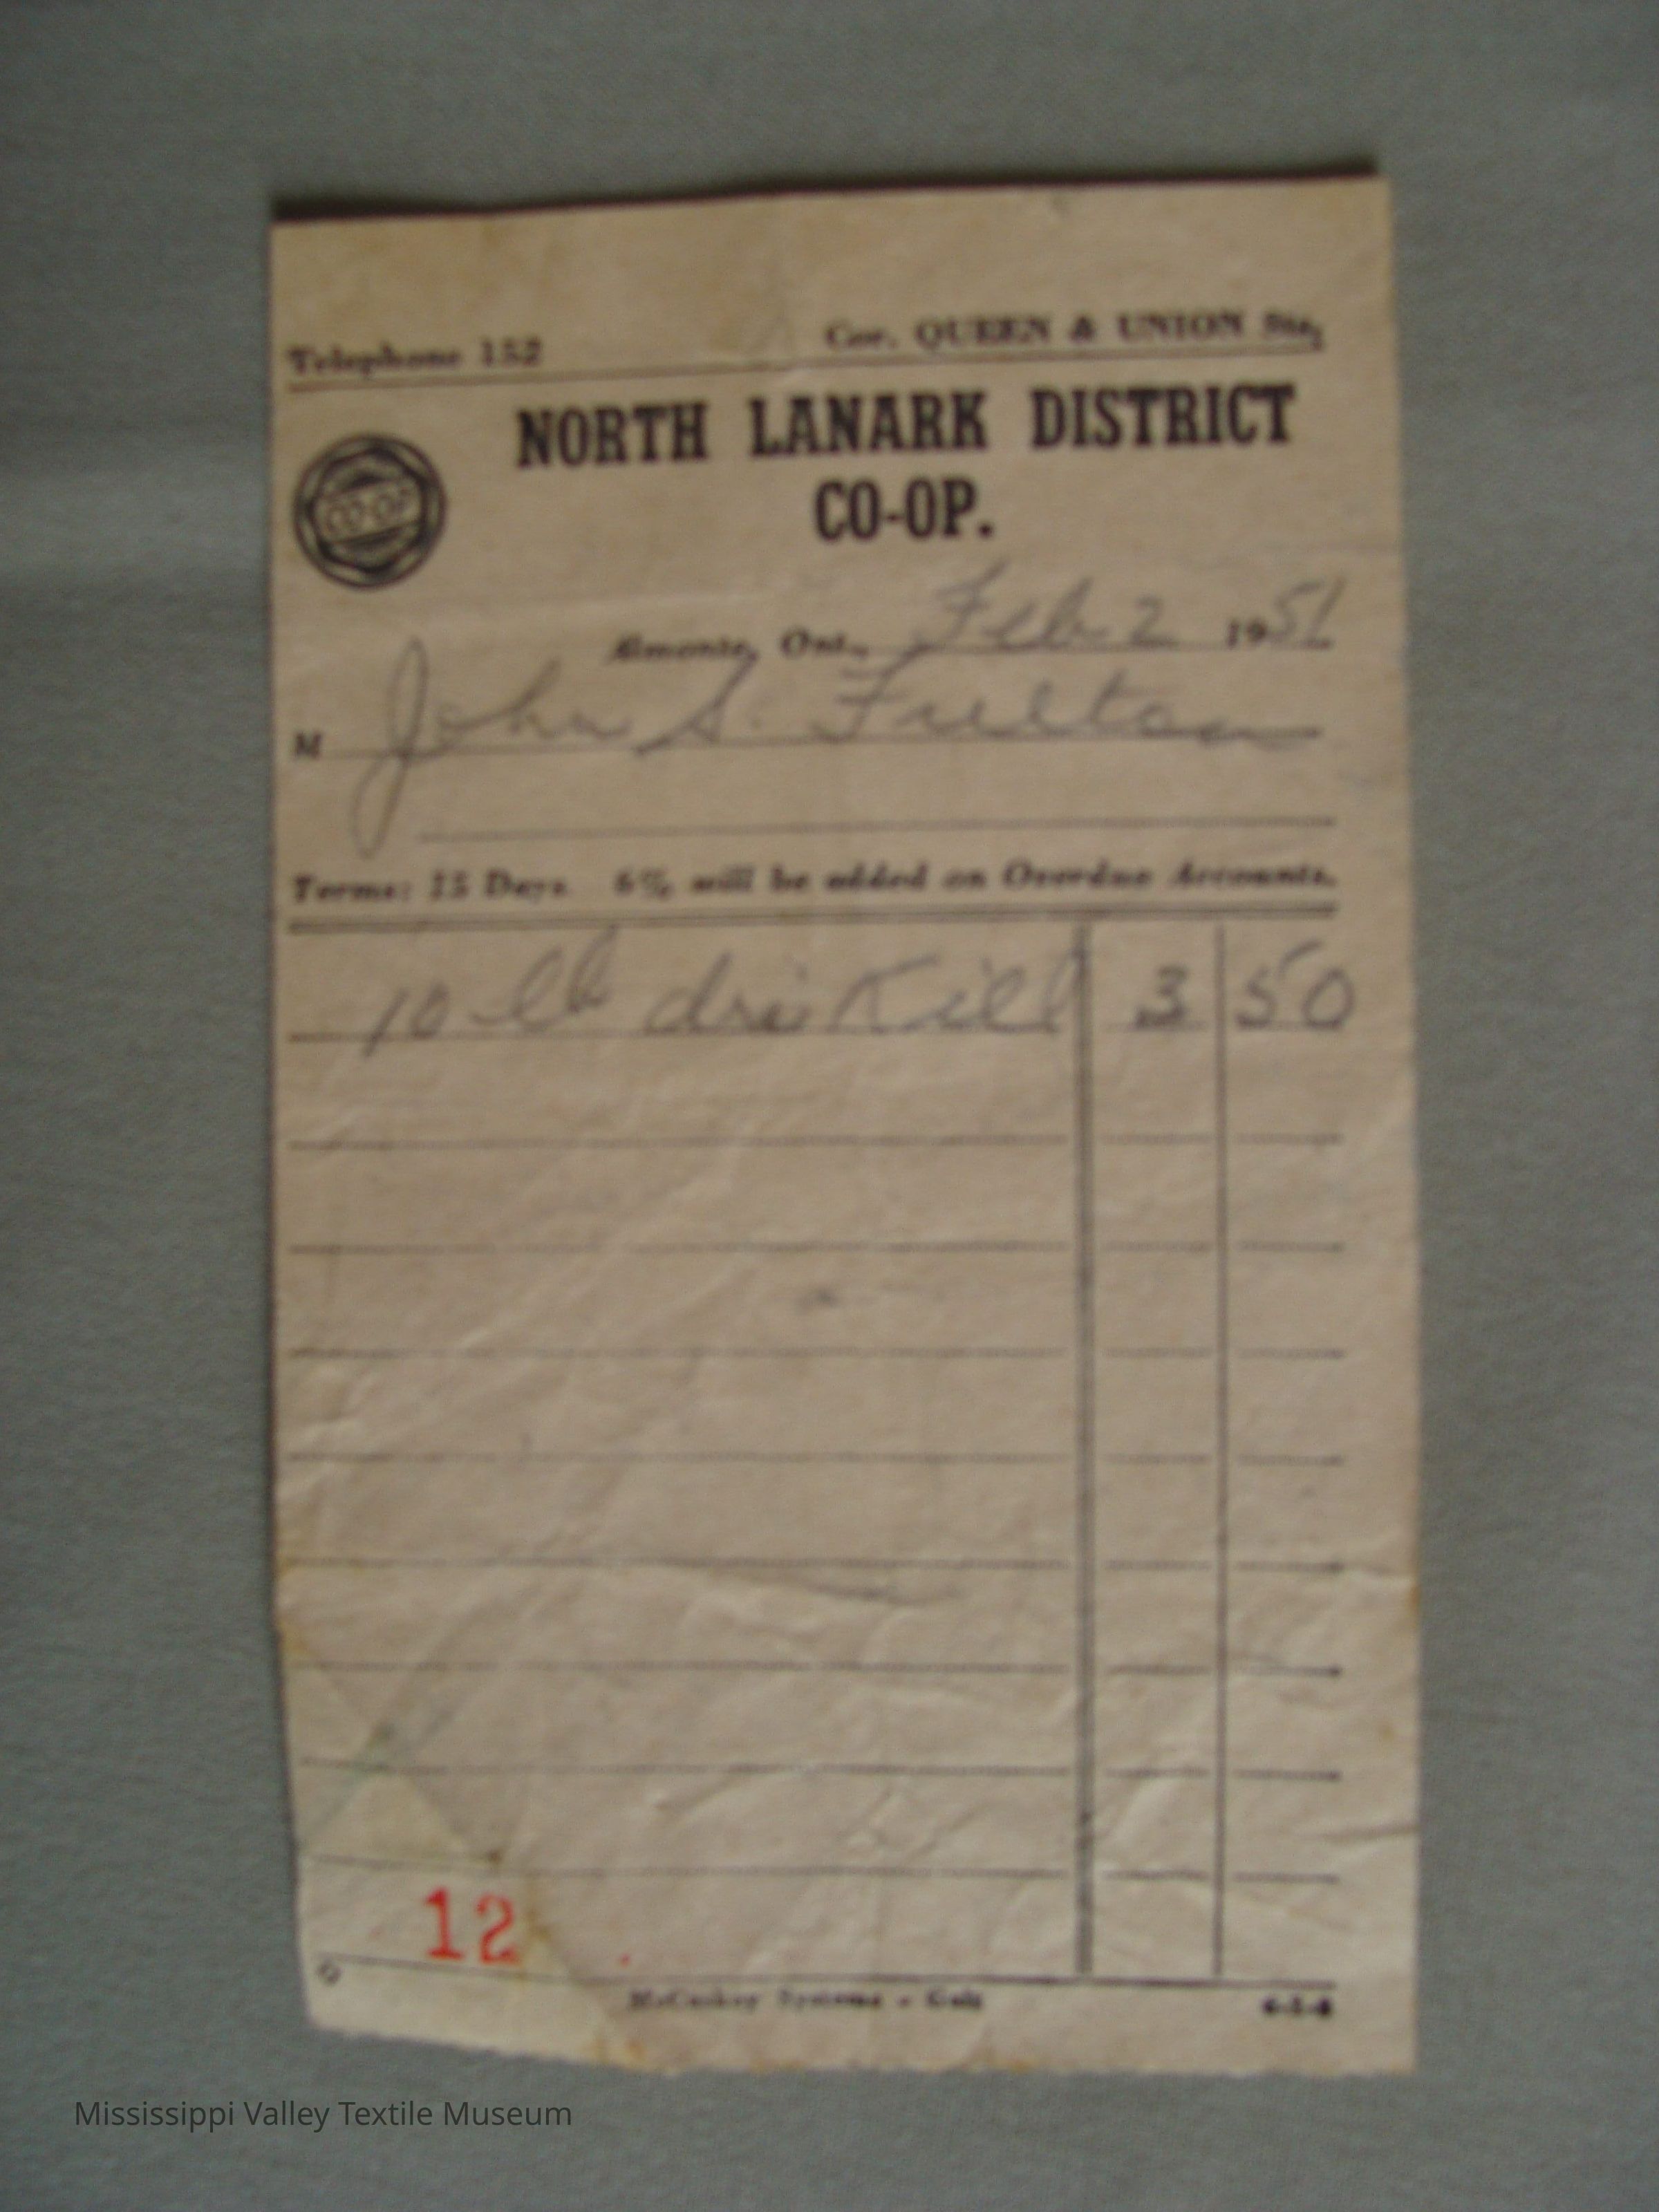 Telephone 152 Cor. QUEEN & UNION Sts,
NORTH LANARK DISTRICT
CO-OP.
CO-OP
Almonte, Ont., Feb 2 1951
M John S. Fulton
Terms: 15 Days 6% will be added on Overdue Accounts.
10 lb dri Kill 3 50
12
McCaskey Systems - Galt
Mississippi Valley Textile Museum